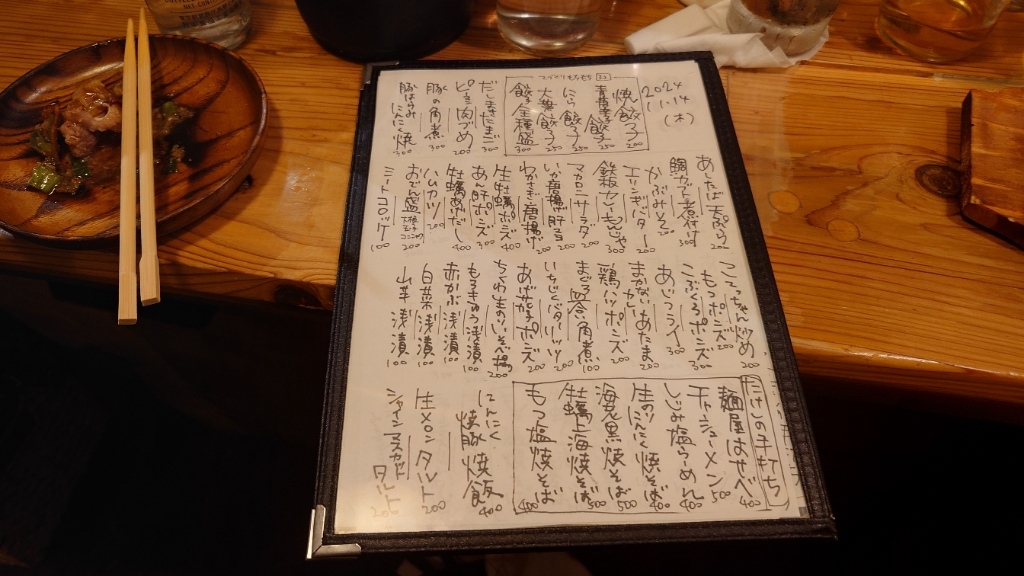 2024
11.14
(木)
焼餃子
にら餃子
大葉餃子
餃子全種盛 300
だしまきたまご 300
ピーマン肉づめ 200
豚の角煮 300
豚はらみにんにく焼 300
鯛カブト煮付け 300
かぶみそ 200
エリンギバター 200
鉄板カレーもんじゃ
マカロニサラダ 200
わかさぎ唐揚げ 200
生牡蠣ポンズ 400
あん肝ポンズ 300
牡蠣あめだし 400
ハムカツ 200
おでん盛 200
ミートコロッケ 100
もつポンズ 200
こぶくろポンズ 300
あじフライ 300
鶏ハツポンズ 200
まぐろ冷角煮 100
いちじくバター 200
あげなすポンズ 200
ちくわ生のりいそべ揚 200
もろきゅう浅漬 100
赤かぶ浅漬 100
白菜浅漬 100
山芋浅漬 100
手打ち
麺屋はせべ 400
チャーシューメン 500
しじみ塩らーめん 400
生のりにんにく焼そば 400
海老黒焼そば 500
牡蠣上海焼そば 500
もつ塩焼そば 400
にんにく焼豚焼飯 400
生メロンタルト 200
シャインマスカットタルト 200